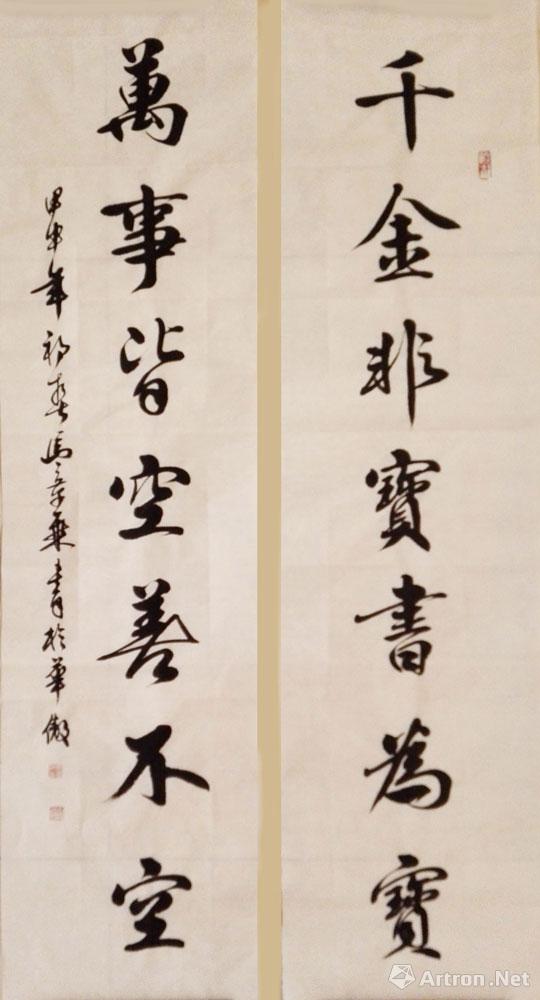 千金非寶書為寶
萬事皆空善不空
甲申年初春馬章乘書於華傲
Artron.Net